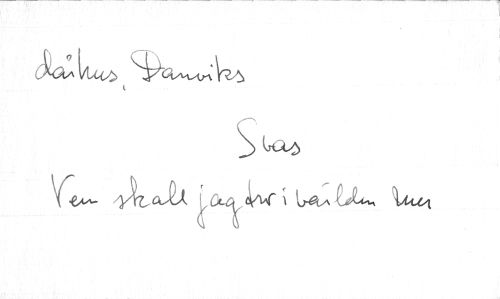 dårhus, Danviks
Svas
Vem skall jag tro i världen mer